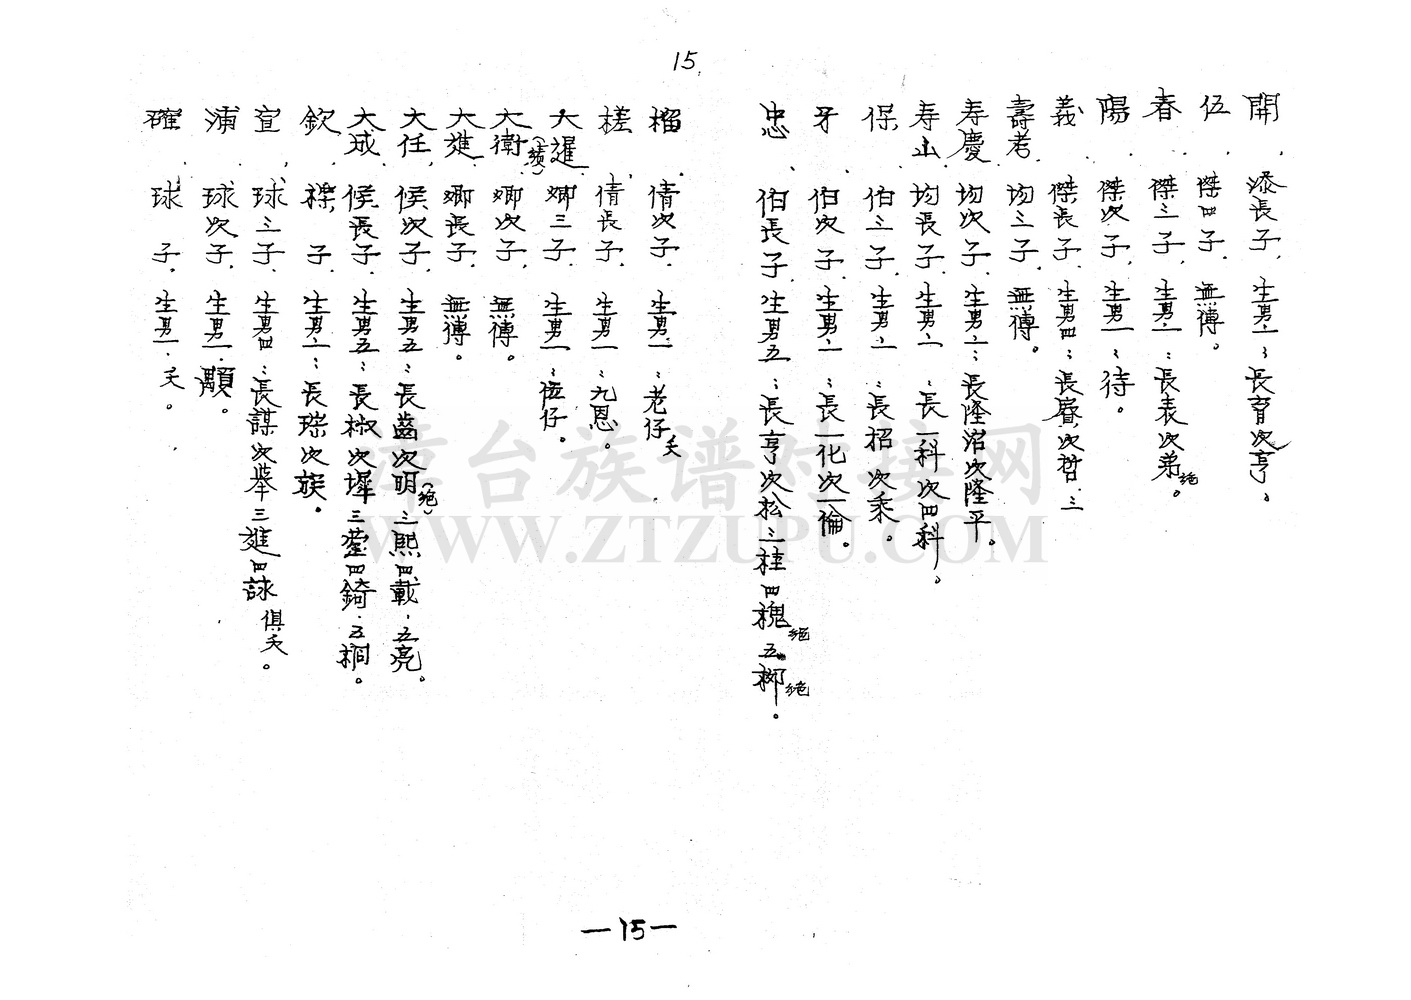 15
開 添長子 生男二：長育次亨、
伍 傑四子 無傳。
春 傑三子 生男二：長表次弟絕。
陽 傑次子 生男一：待。
義 傑長子 生男四：長寮次哲三
壽考 均三子 無傳。
寿慶 均次子 生男二：長隆治次隆平。
寿山 均長子 生男二：長一科次四科。
保 伯三子 生男二：長招次秉。
牙 伯次子 生男二：長一化次一倫。
忠 伯長子 生男五：長亨次松三桂四槐絕五柳絕。
榴 倩次子 生男一：老仔夭
槎 倩長子 生男一：九恩。
大暹 卿三子 生男一：伍仔。
大衛（績） 卿次子 無傳。
大進 卿長子 無傳。
大任 候次子 生男五：長齒次明（絕）三熙四載五亮。
大成 候長子 生男五：長椒次墀三蓥四錡五桐。
欽 子 生男二：長瑞次族。
宣 球三子 生男四：長謀次舉三進四詠俱夭。
浦 球次子 生男一顒。
確 球子 生男一夭。
漳台族谱对接网
WWW.ZTZUPU.COM
—15—